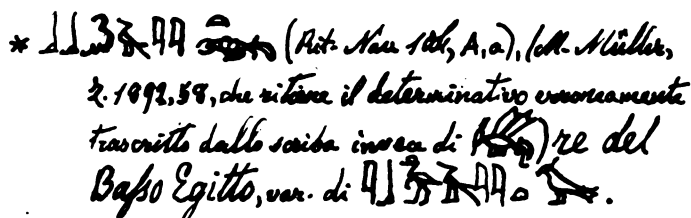 * (Rit: Nav. 168, A, a), (M. Müller,
Z. 1892, 58, che ritiene il determinativo erroneamente
trascritto dallo scriba invece di ( ) re del
Baſso Egitto, var. di .